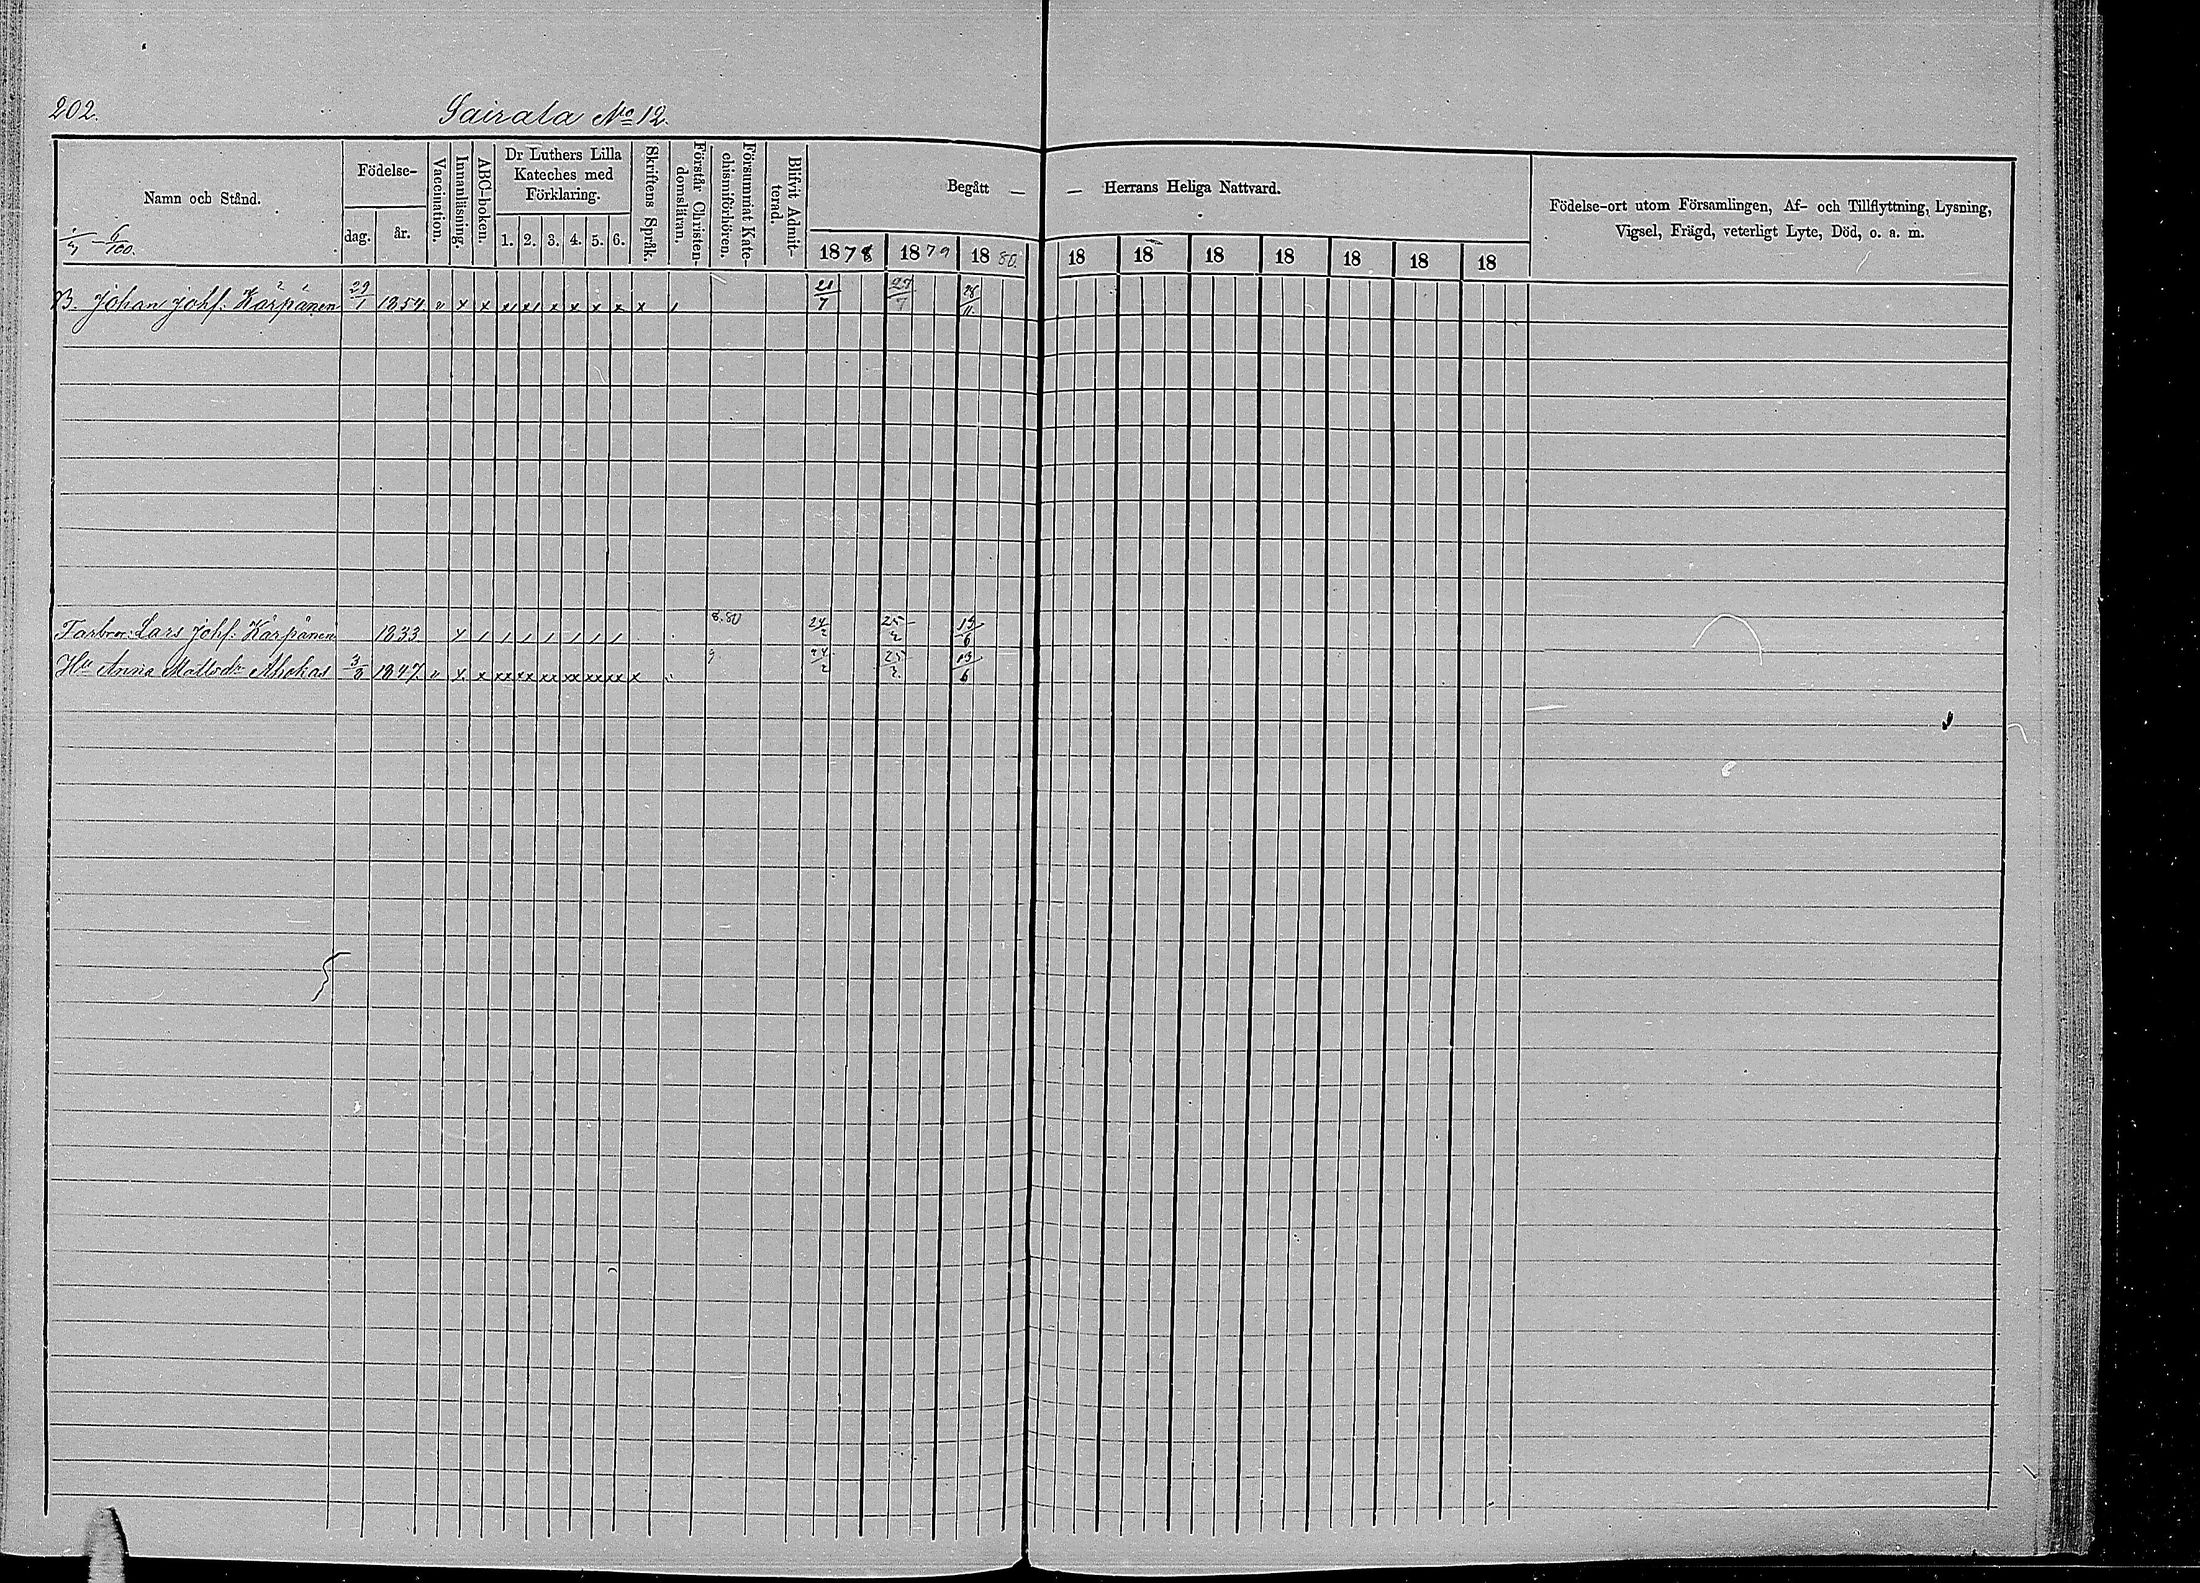 202.
Sairala No 12.
Namn och Stånd.
6/100.
Födelse-
dag.
år.
Vaccination.
Innanläsning.
ABC-boken.
Dr Luthers Lilla
Kateches med
Förklaring.
1. 2. 3. 4. 5. 6.
Skriftens Språk.
Förstår Christen-
domsläran.
Försummat Kate-
chismiförhören.
Blifvit Admit-
terad.
Begått — — Herrans Heliga Nattvard.
1878 1879 1880. 18 18 18 18 18 18 18
Födelse-ort utom Församlingen, Af- och Tillflyttning, Lysning,
Vigsel, Frägd, veterligt Lyte, Död, o. a. m.
B. Johan Johs. Kärpänen 29/1 1854. v x x x x x x x x x 21/7 27/7 28/11.
Farbror: Lars Johs. Kärpänen 1833 x / / / / / / / 8.80 24/2 25/2 13/6
Hu Anna Mattsdr Ahokas 3/8 1847. v x x xx xx xx xx xx xx x 9 24/2 25/2 13/6